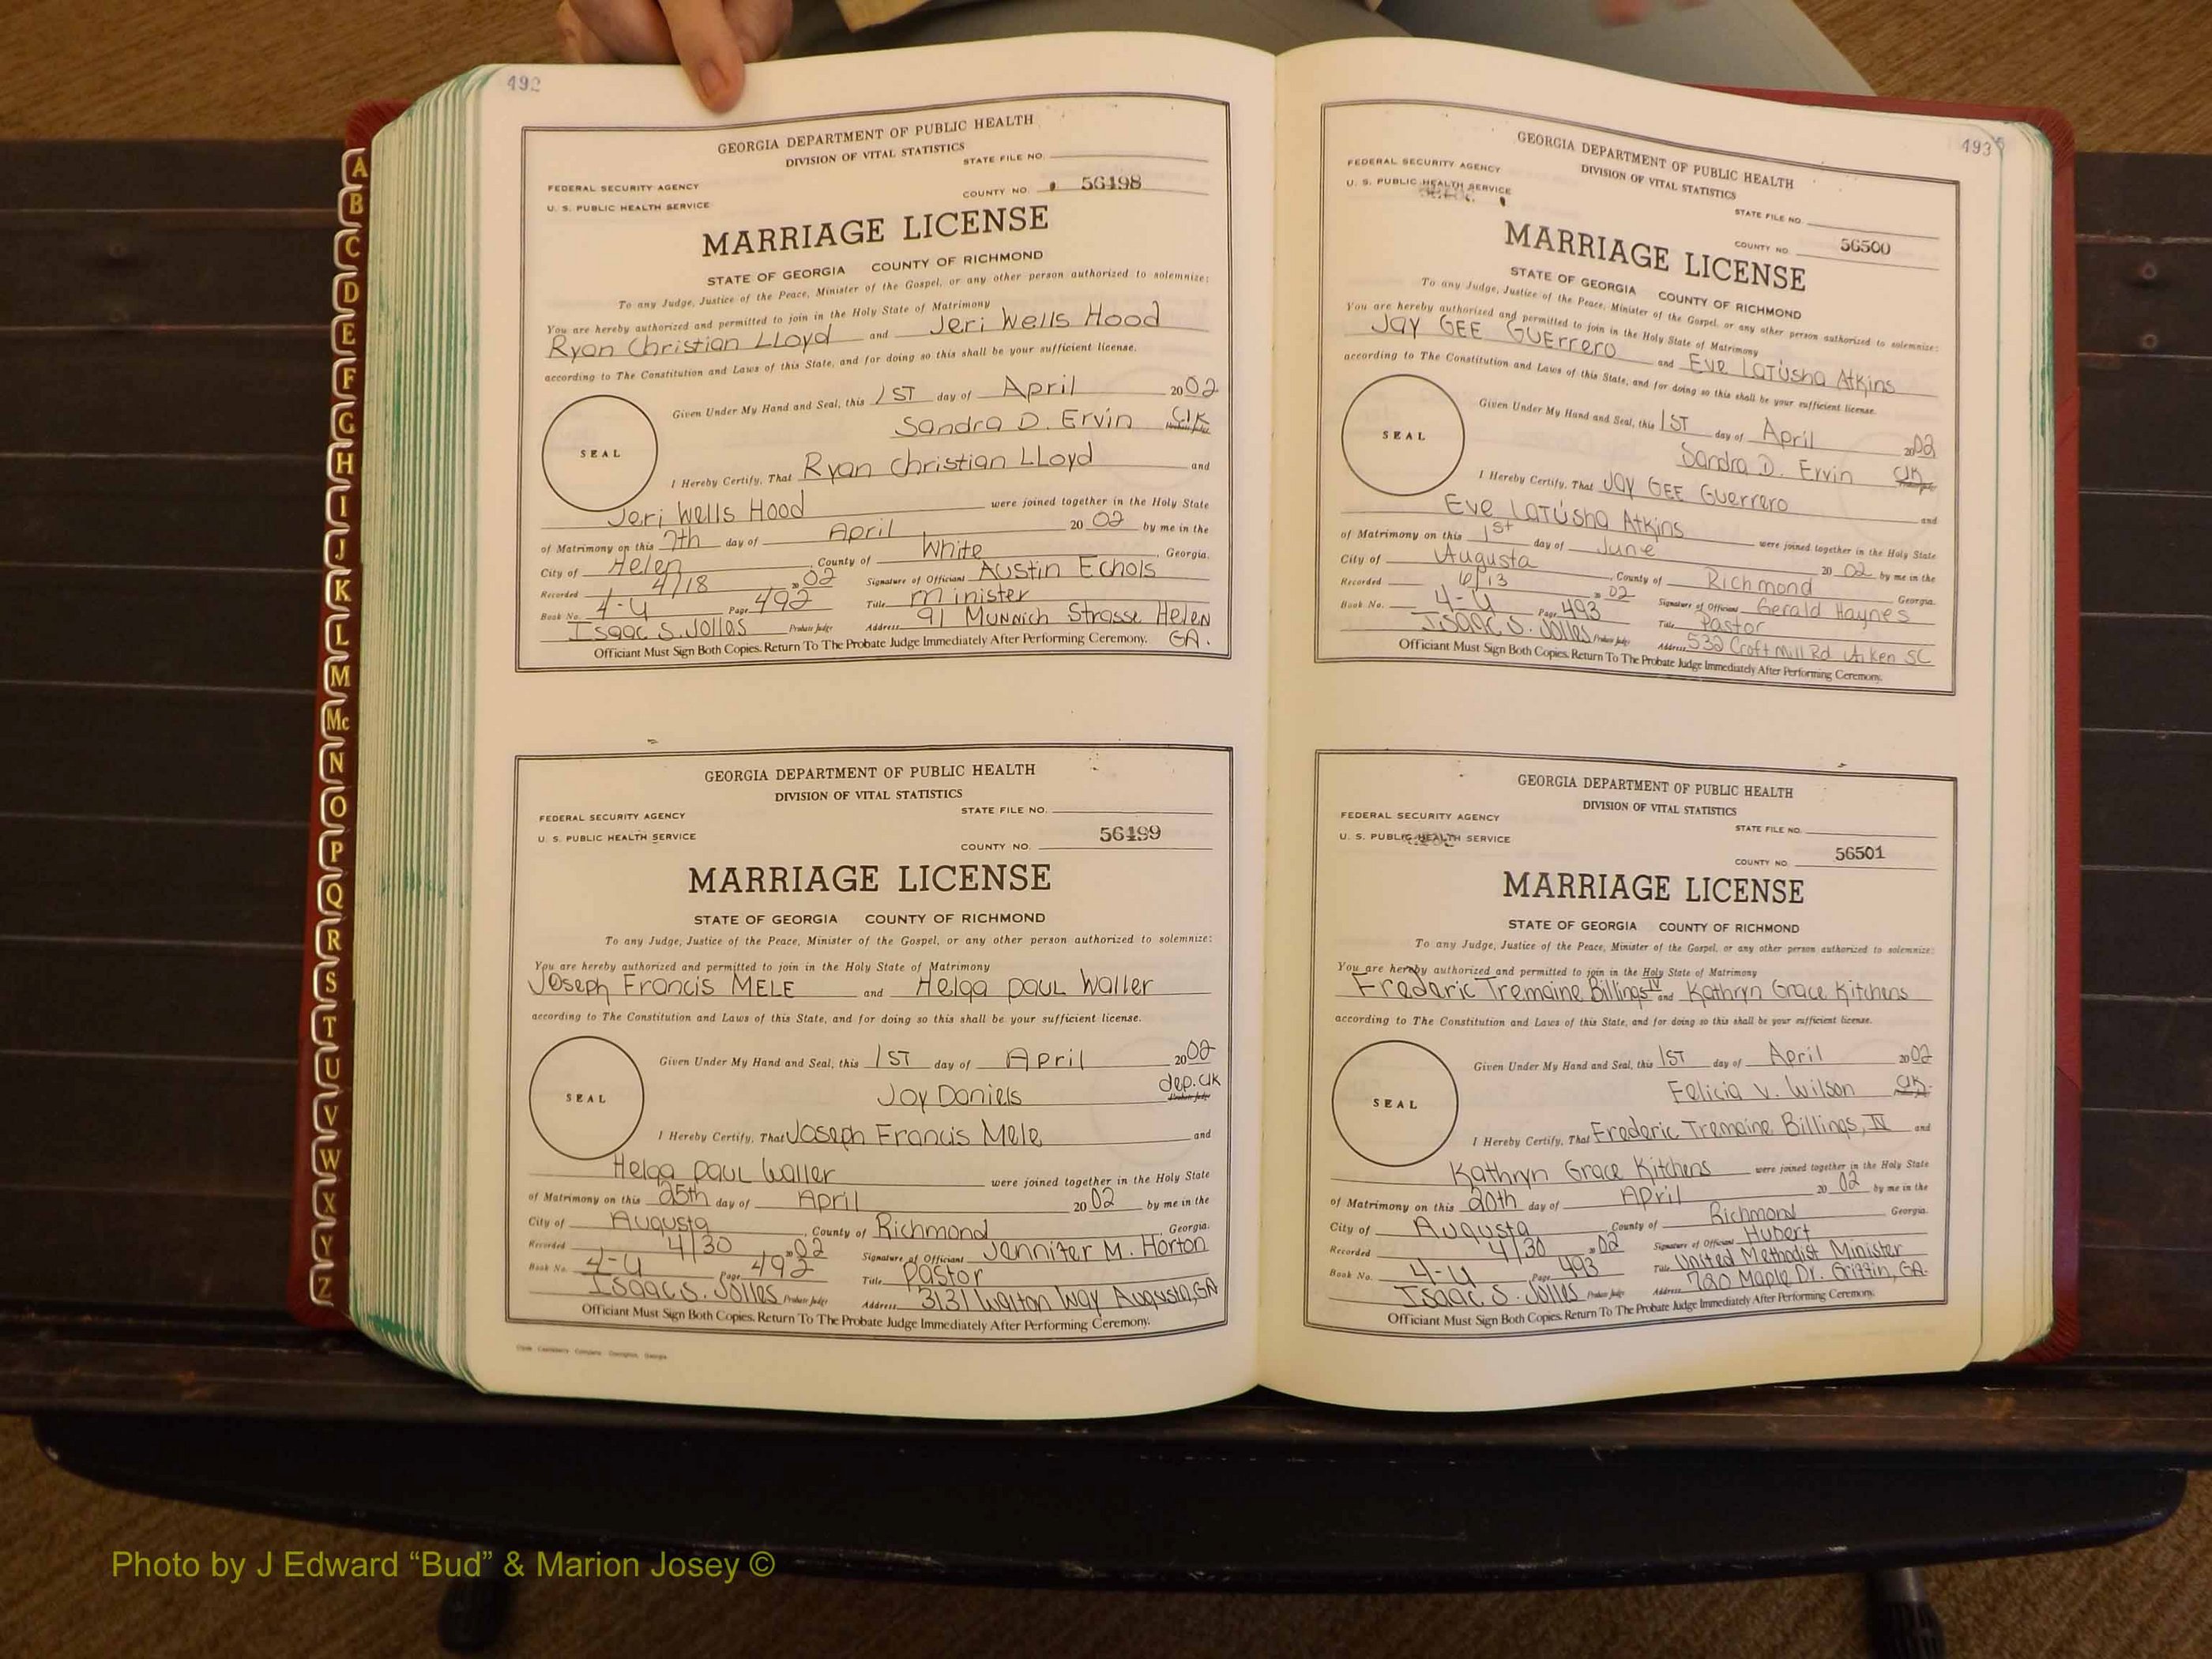 492
GEORGIA DEPARTMENT OF PUBLIC HEALTH
DIVISION OF VITAL STATISTICS
STATE FILE NO.
FEDERAL SECURITY AGENCY
U. S. PUBLIC HEALTH SERVICE
COUNTY NO. 56498
MARRIAGE LICENSE
STATE OF GEORGIA COUNTY OF RICHMOND
To any Judge, Justice of the Peace, Minister of the Gospel, or any other person authorized to solemnize:
You are hereby authorized and permitted to join in the Holy State of Matrimony
Ryan Christian LLoyd and Jeri Wells Hood
according to The Constitution and Laws of this State, and for doing so this shall be your sufficient license.
Given Under My Hand and Seal, this 1ST day of April 2002
Sandra D. Ervin Clk
Probate Judge
SEAL
I Hereby Certify, That Ryan Christian LLoyd and
Jeri Wells Hood were joined together in the Holy State
of Matrimony on this 7th day of April 20 02 by me in the
City of Helen, County of White, Georgia.
Recorded 4/18 20 02 Signature of Officiant Austin Echols
Book No. 4-U Page 492 Title Minister
Isaac S. Jolles Probate Judge Address 91 Munnich Strasse Helen GA.
Officiant Must Sign Both Copies. Return To The Probate Judge Immediately After Performing Ceremony.
GEORGIA DEPARTMENT OF PUBLIC HEALTH
DIVISION OF VITAL STATISTICS
STATE FILE NO.
FEDERAL SECURITY AGENCY
U. S. PUBLIC HEALTH SERVICE
COUNTY NO. 56499
MARRIAGE LICENSE
STATE OF GEORGIA COUNTY OF RICHMOND
To any Judge, Justice of the Peace, Minister of the Gospel, or any other person authorized to solemnize:
You are hereby authorized and permitted to join in the Holy State of Matrimony
Joseph Francis MELE and Helga PAUL Waller
according to The Constitution and Laws of this State, and for doing so this shall be your sufficient license.
Given Under My Hand and Seal, this 1ST day of April 2002
Joy Daniels dep. Clk
Probate Judge
SEAL
I Hereby Certify, That Joseph Francis Mele and
Helga PAUL Waller were joined together in the Holy State
of Matrimony on this 25th day of April 20 02 by me in the
City of Augusta, County of Richmond, Georgia.
Recorded 4/30 20 02 Signature of Officiant Jennifer M. Horton
Book No. 4-U Page 492 Title Pastor
Isaac S. Jolles Probate Judge Address 3131 Walton Way Augusta, GA
Officiant Must Sign Both Copies. Return To The Probate Judge Immediately After Performing Ceremony.
493
GEORGIA DEPARTMENT OF PUBLIC HEALTH
DIVISION OF VITAL STATISTICS
FEDERAL SECURITY AGENCY
U. S. PUBLIC HEALTH SERVICE
STATE FILE NO.
COUNTY NO. 56500
MARRIAGE LICENSE
STATE OF GEORGIA COUNTY OF RICHMOND
To any Judge, Justice of the Peace, Minister of the Gospel, or any other person authorized to solemnize:
You are hereby authorized and permitted to join in the Holy State of Matrimony
Jay GEE GUErrero and Eve LaTusha Atkins
according to The Constitution and Laws of this State, and for doing so this shall be your sufficient license.
Given Under My Hand and Seal, this 1ST day of April 2002
Sandra D. Ervin Clk
Probate Judge
SEAL
I Hereby Certify, That Jay GEE Guerrero and
Eve LaTusha Atkins were joined together in the Holy State
of Matrimony on this 1st day of June 20 02 by me in the
City of Augusta, County of Richmond Georgia.
Recorded 6/13 20 02 Signature of Officiant Gerald Haynes
Book No. 4-U Page 493 Title Pastor
Isaac S. Jolles Probate Judge Address 532 Croft Mill Rd Aiken SC
Officiant Must Sign Both Copies. Return To The Probate Judge Immediately After Performing Ceremony.
GEORGIA DEPARTMENT OF PUBLIC HEALTH
DIVISION OF VITAL STATISTICS
FEDERAL SECURITY AGENCY
STATE FILE NO.
U. S. PUBLIC HEALTH SERVICE
COUNTY NO. 56501
MARRIAGE LICENSE
STATE OF GEORGIA COUNTY OF RICHMOND
To any Judge, Justice of the Peace, Minister of the Gospel, or any other person authorized to solemnize:
You are hereby authorized and permitted to join in the Holy State of Matrimony
Frederic Tremaine Billings IV and Kathryn Grace Kitchens
according to The Constitution and Laws of this State, and for doing so this shall be your sufficient license.
Given Under My Hand and Seal, this 1ST day of April 2002
Felicia V. Wilson Clk.
SEAL
I Hereby Certify, That Frederic Tremaine Billings, IV and
Kathryn Grace Kitchens were joined together in the Holy State
of Matrimony on this 20th day of April 20 02 by me in the
City of Augusta, County of Richmond Georgia.
Recorded 4/30 20 02 Signature of Officiant Hubert
Book No. 4-U Page 493 Title United Methodist Minister
Isaac S. Jolles Probate Judge Address 720 Maple Dr. Griffin, GA.
Officiant Must Sign Both Copies. Return To The Probate Judge Immediately After Performing Ceremony.
A
B
C
D
E
F
G
H
I
J
K
L
M
Mc
N
O
P
Q
R
S
T
U
V
W
X
Y
Z
Photo by J Edward “Bud” & Marion Josey ©